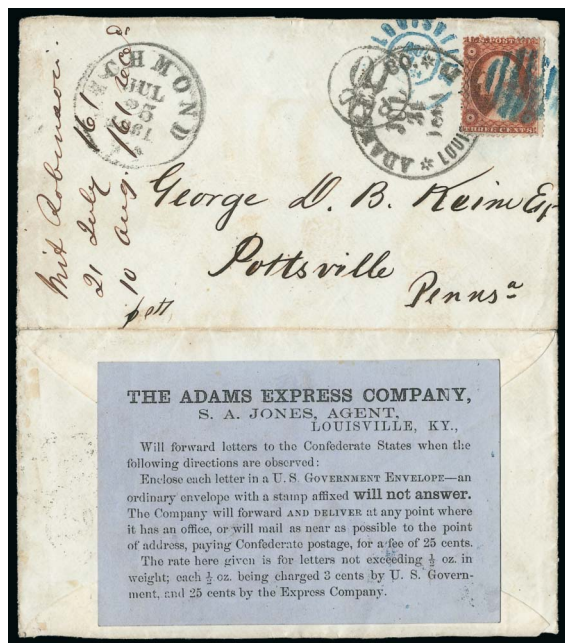 RICHMOND
JUL
25
1861
LOUISVILLE
ADAMS EX. CO.
LOUISVILLE
1861
U.S. POSTAGE
THREE CENTS
21 July '61
10 aug '61 rec'd
George D. B. Keim Esq
Pottsville
Penns<sup>a</sup>
THE ADAMS EXPRESS COMPANY,
S. A. JONES, AGENT,
LOUISVILLE, KY.,
Will forward letters to the Confederate States when the
following directions are observed:
Enclose each letter in a U. S. GOVERNMENT ENVELOPE—an
ordinary envelope with a stamp affixed will not answer.
The Company will forward AND DELIVER at any point where
it has an office, or will mail as near as possible to the point
of address, paying Confederate postage, for a fee of 25 cents.
The rate here given is for letters not exceeding ½ oz. in
weight; each ½ oz. being charged 3 cents by U. S. Govern-
ment, and 25 cents by the Express Company.